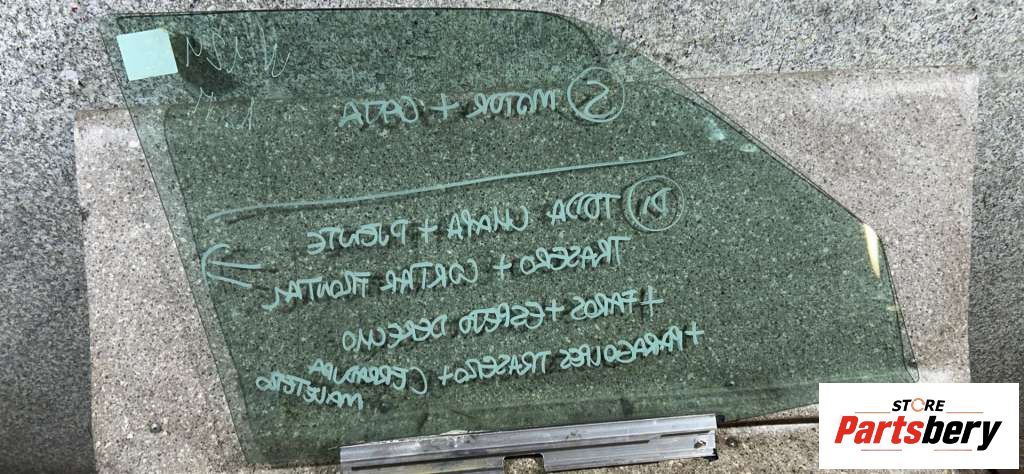 S MOTOR + CAJA
D1 TODA CHAPA + PUENTE
TRASERO + CORTAR FRONTAL
+ FAROS + ESPEJO DERECHO
+ PARAGOLPES TRASERO + CERRADURA
MALETERO
STORE
Partsbery